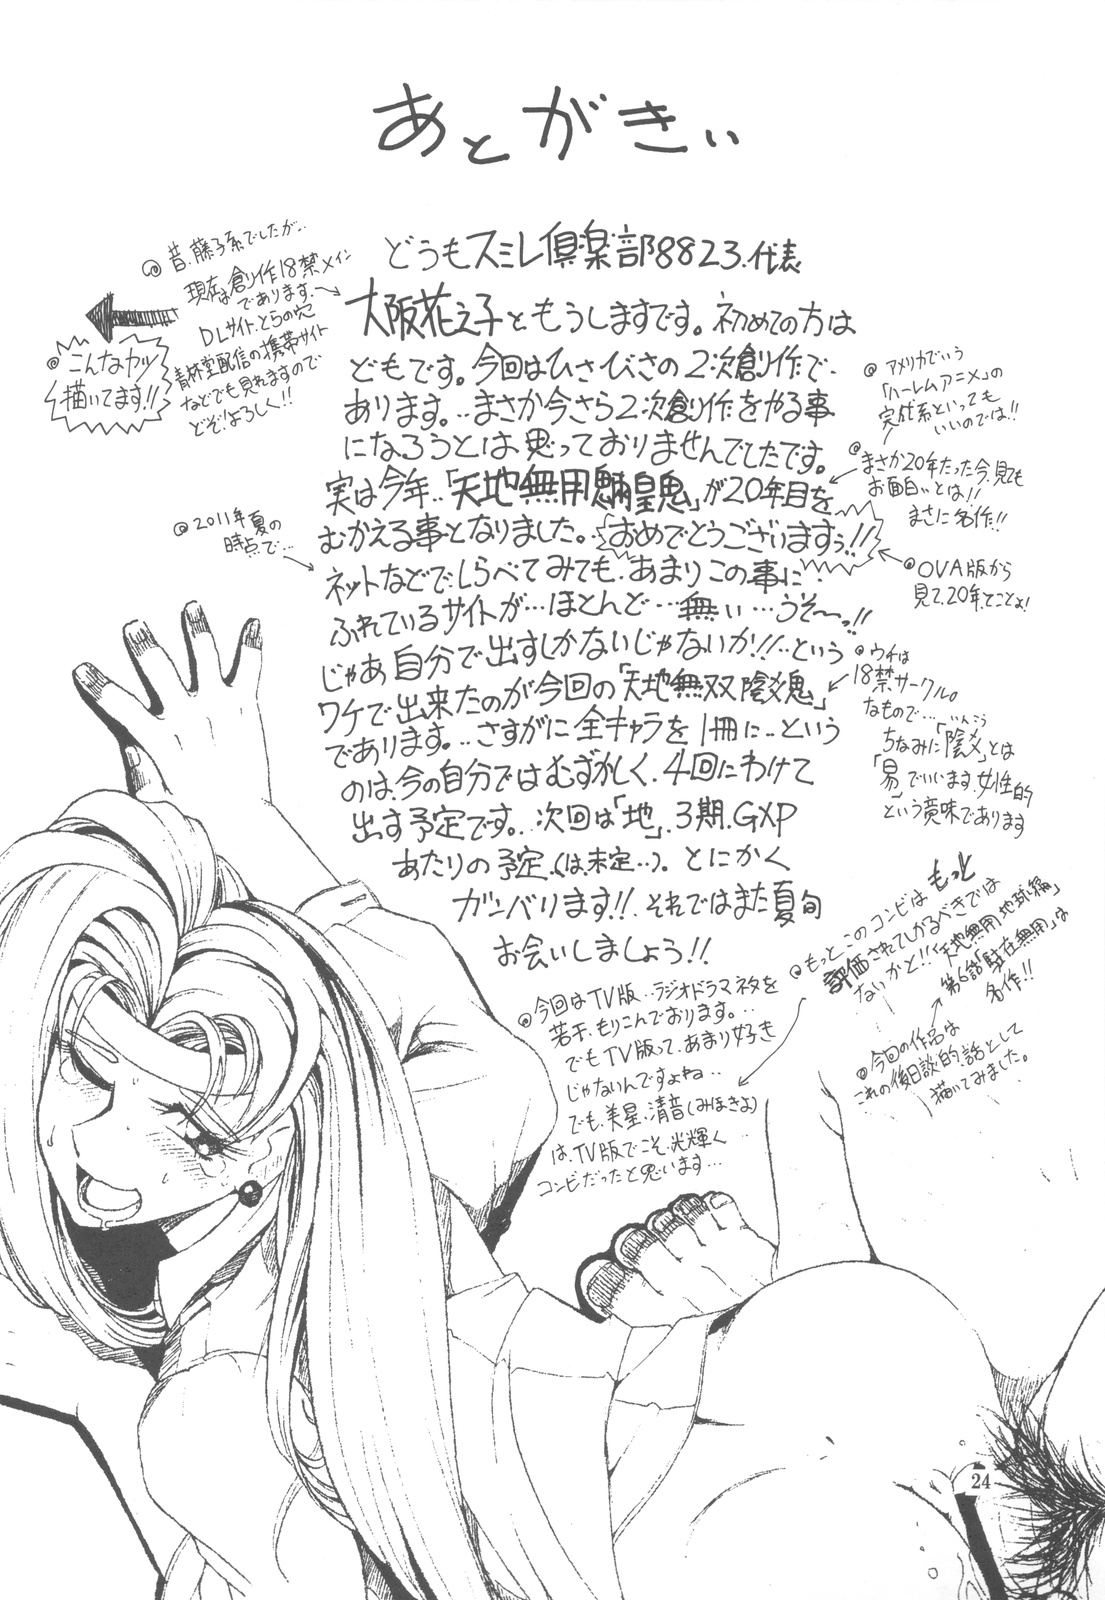 あとがきぃ
どうもスミレ倶楽部8823.代表
大阪花之子ともうしますです。初めての方は
どもです。今回はひさびさの2次創作で、
あります。‥まさか今さら2次創作をやる事
になろうとは思っておりませんでしたです。
実は今年‥「天地無用魎皇鬼」が20年目を
むかえる事となりました。「おめでとうございますぅ!!
ネットなどで、しらべてみても、あまりこの事に
ふれているサイトが…ほとんど…無い…うそ〜っ!!
じゃあ自分で出すしかないじゃないか!!‥という
ワケで出来たのが今回の「天地無双陰交鬼」
であります。‥さすがに全キャラを1冊に‥という
のは、今の自分ではむずかしく、4回にわけて
出す予定です。‥次回は「地」、3期、GXP
あたりの予定、(は、未定‥)。とにかく
ガンバります!!、それではまた夏旬
お会いしましょう!!
昔、藤子系でしたが‥
現在は創り作18禁メイン
であります。
DLサイト、とらの穴
青林堂配信の携帯サイト
などでも見れますので
どぞ!よろしく!!
こんなカッ
描いてます!!
2011年夏の
時点で…
アメリカでいう
「ハーレムアニメ」の
完成系といっても
いいのでは!!
まさか20年たった今、見ても
お面白いとは!!
まさに名作!!
OVA版から
見て、20年、とことよ!
ウチは
18禁サークル。
なもので…
いんこう
ちなみに「陰交」とは
「易」でいいます、女性的
という意味であります
今回はTV版‥ラジオドラマネタを
若干、もりこんでおります。…
でもTV版って、あまり好き
じゃないんですよね…
でも、美星、清音(みほきよ)
は、TV版でこそ、光輝く…
コンビだったと思います…
もっとこのコンビはもっと
評価されてしかるべきでは
ないかと!!「天地無用地球編」
第6話「駐在無用」は
名作!!
今回の作品は
これの後日談的話として
描いてみました。
24